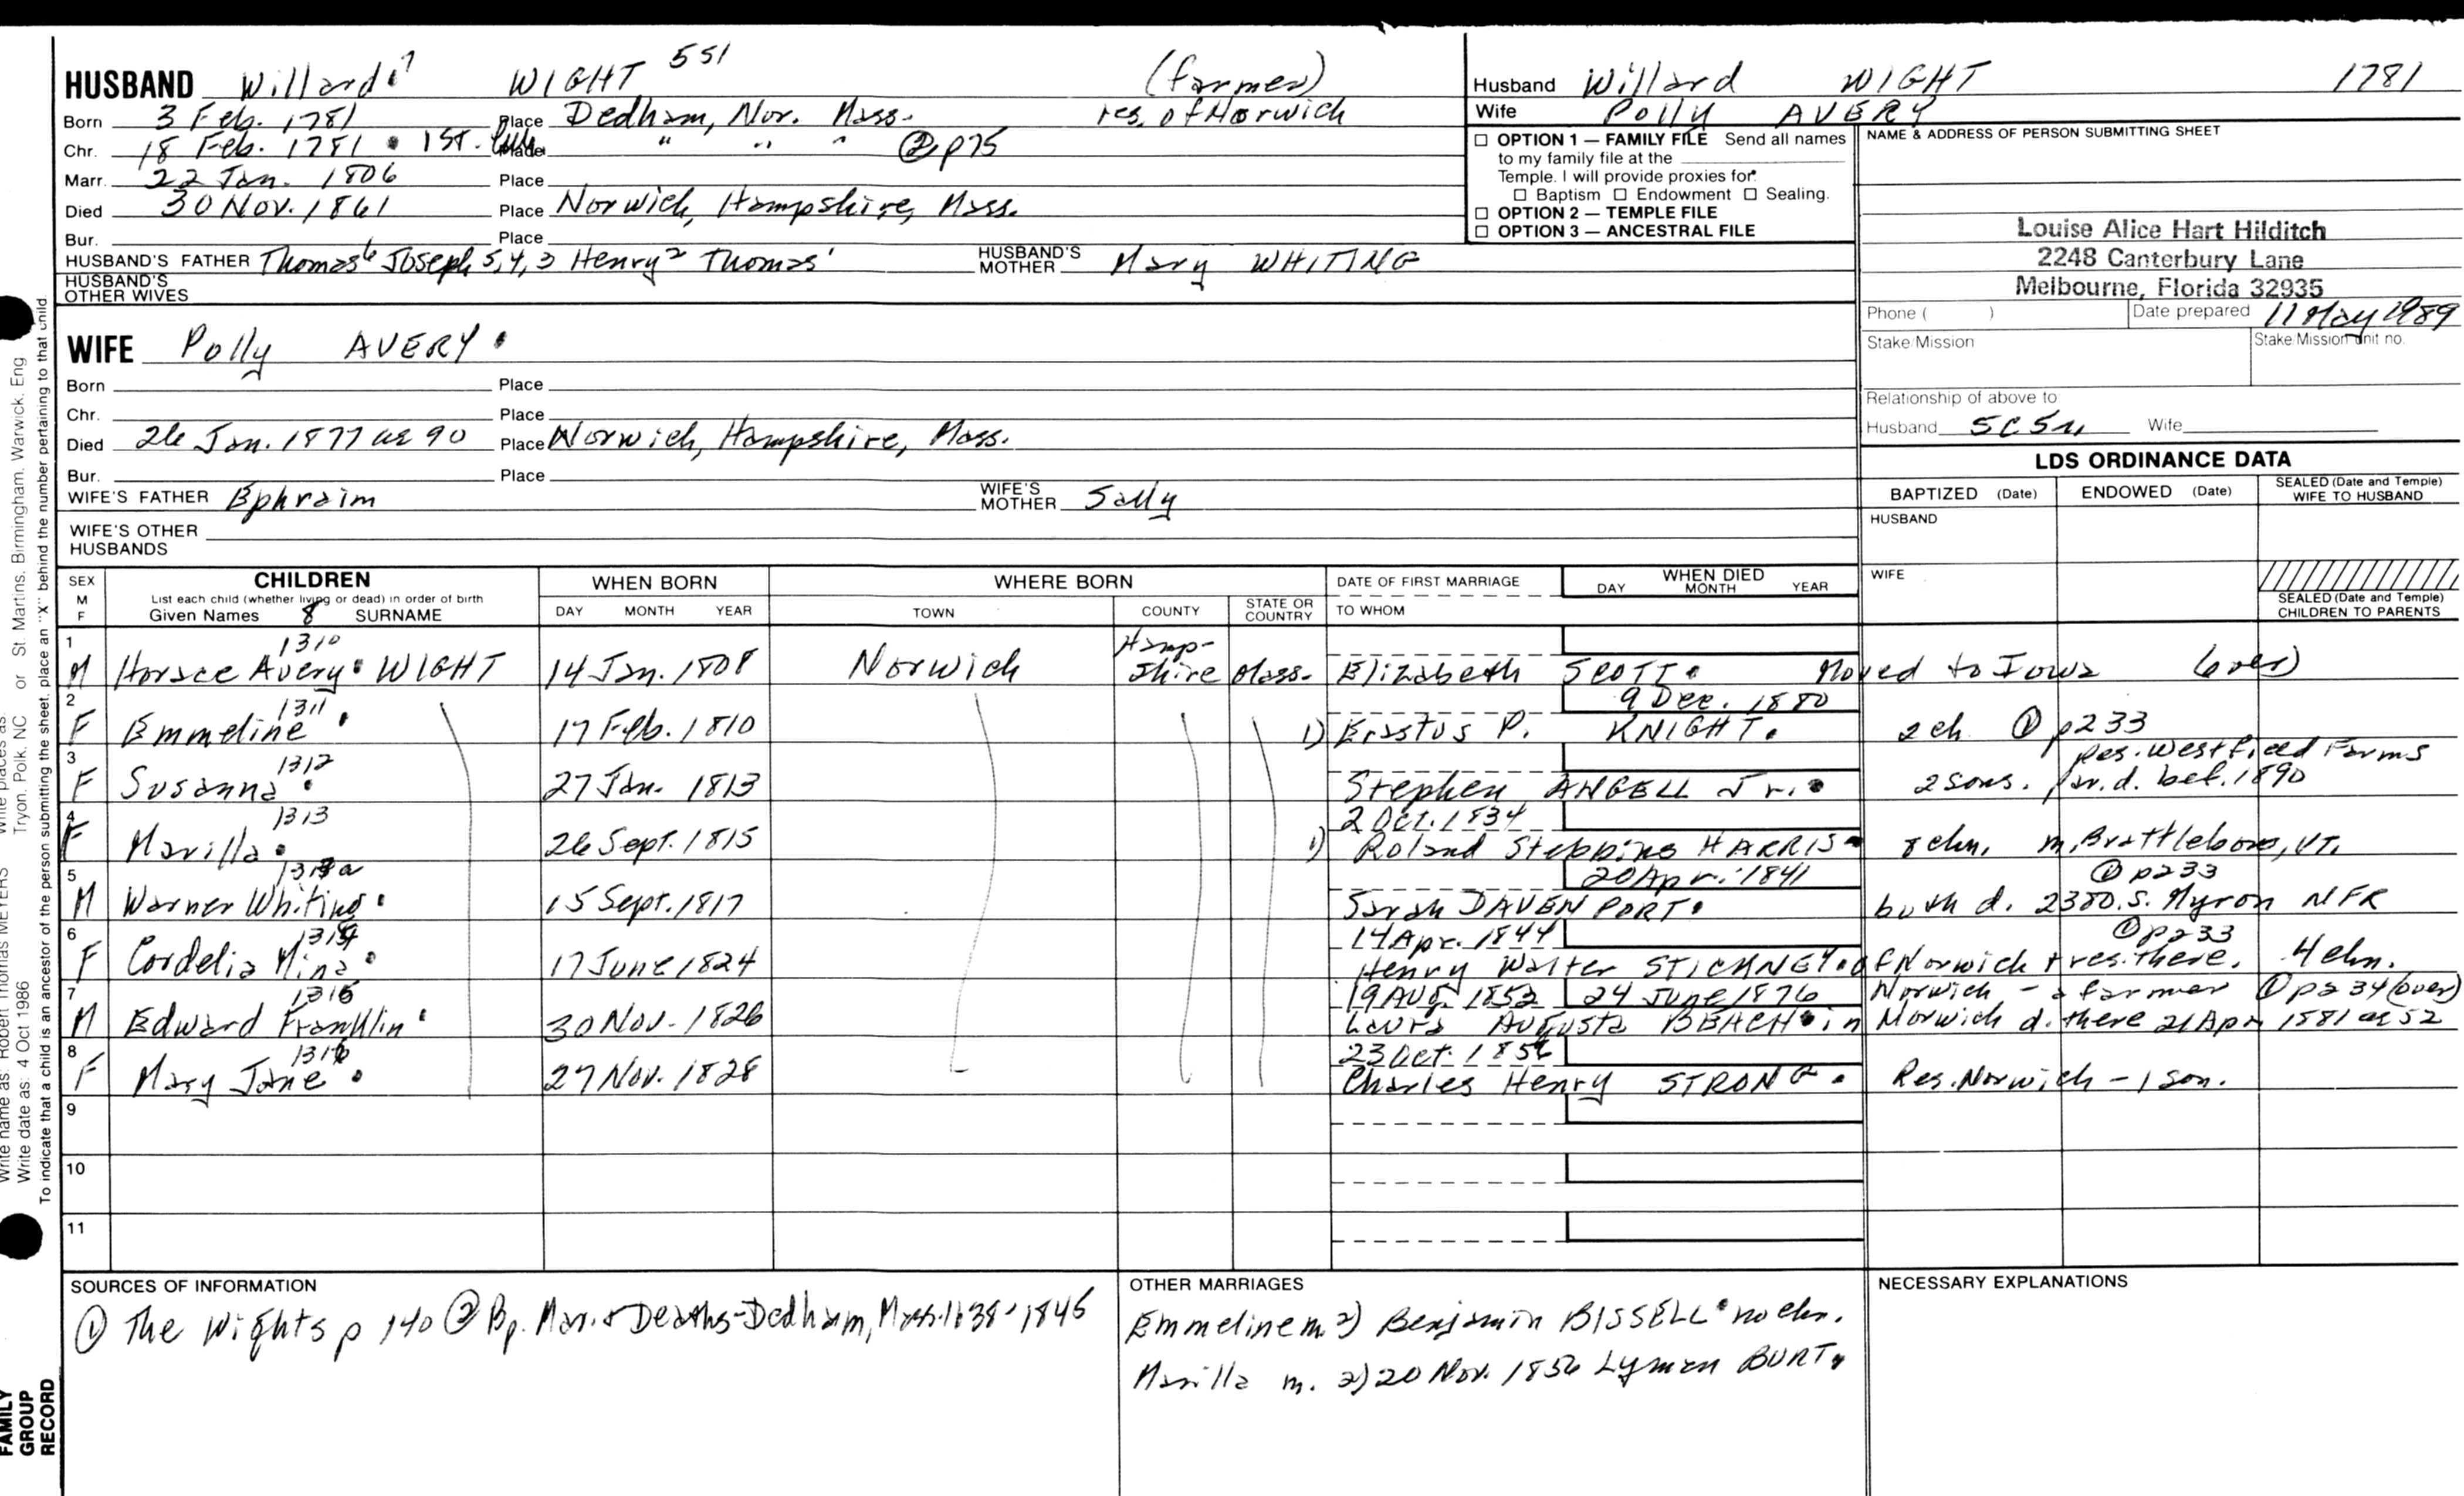 HUSBAND Willard 7 WIGHT 551 (farmer)
Born 3 Feb. 1781 Place Dedham, Nor. Mass. res. of Norwich
Chr. 18 Feb. 1781 1st. Place " " " ② p75
Marr. 22 Jan. 1806 Place
Died 30 Nov. 1861 Place Norwich, Hampshire, Mass.
Bur. Place
HUSBAND'S FATHER Thomas 6 Joseph 5,4,3 Henry 2 Thomas 1 HUSBAND'S MOTHER Mary WHITING
HUSBAND'S OTHER WIVES
WIFE Polly AVERY
Born Place
Chr. Place
Died 26 Jan. 1877 ae 90 Place Norwich, Hampshire, Mass.
Bur. Place
WIFE'S FATHER Ephraim WIFE'S MOTHER Sally
WIFE'S OTHER HUSBANDS
Husband Willard WIGHT 1781
Wife Polly AVERY
☐ OPTION 1 — FAMILY FILE Send all names
to my family file at the
Temple. I will provide proxies for:
☐ Baptism ☐ Endowment ☐ Sealing.
☐ OPTION 2 — TEMPLE FILE
☐ OPTION 3 — ANCESTRAL FILE
NAME & ADDRESS OF PERSON SUBMITTING SHEET
Louise Alice Hart Hilditch
2248 Canterbury Lane
Melbourne, Florida 32935
Phone ( ) Date prepared 11 May 1989
Stake/Mission Stake/Mission unit no.
Relationship of above to
Husband 5C5r Wife
LDS ORDINANCE DATA
BAPTIZED (Date) ENDOWED (Date) SEALED (Date and Temple) WIFE TO HUSBAND
HUSBAND
WIFE
SEALED (Date and Temple) CHILDREN TO PARENTS
SEX M F CHILDREN WHEN BORN WHERE BORN DATE OF FIRST MARRIAGE WHEN DIED
List each child (whether living or dead) in order of birth
Given Names 8 SURNAME DAY MONTH YEAR TOWN COUNTY STATE OR COUNTRY TO WHOM DAY MONTH YEAR
1 1310 Hamp-
M Horace Avery WIGHT 14 Jan. 1808 Norwich shire Mass. Elizabeth SCOTT Moved to Iowa (over)
2 1311 9 Dec. 1880
F Emmeline 17 Feb. 1810 1) Erastus P. KNIGHT. 2 ch ① p233
3 1312 res. Westfield Farms
F Susanna 27 Jan. 1813 Stephen ANGELL Jr. 2 sons. d. bef. 1890
4 1313 2 Oct. 1834
F Marilla 26 Sept. 1815 1) Roland Stebbins HARRIS chn. m. Brattleboro, VT.
5 20 Apr. 1841 ① p233
M Warner Whiting 15 Sept. 1817 Sarah DAVENPORT both d. S. Myron NFR
6 1314 14 Apr. 1844 ① p233
F Cordelia Mina 17 June 1824 Henry Walter STICKNEY of Norwich + res. there. 4 chn.
7 1315 19 Aug. 1852 24 June 1876 Norwich - a farmer ① p234 (over)
M Edward Franklin 30 Nov. 1826 Laura Augusta BEACH in Norwich d. there 21 Apr 1881 ae 52
8 1316 23 Oct. 1856
F Mary Jane 27 Nov. 1828 Charles Henry STRONG. Res. Norwich - 1 son.
9
10
11
SOURCES OF INFORMATION
① The Wights p 140 ② Bp. Mar. & Deaths-Dedham, Mass. 1638-1845
OTHER MARRIAGES
Emmeline m. 2) Benjamin BISSELL no chn.
Marilla m. 2) 20 Nov. 1856 Lyman BURT.
NECESSARY EXPLANATIONS
To indicate that a child is an ancestor of the person submitting the sheet, place an "X" behind the number pertaining to that child.
Tryon, Polk, NC or St. Martins, Birmingham, Warwick, Eng
Write date as: 4 Oct 1986
Write name as: Robert Thomas MEYERS
FAMILY GROUP RECORD